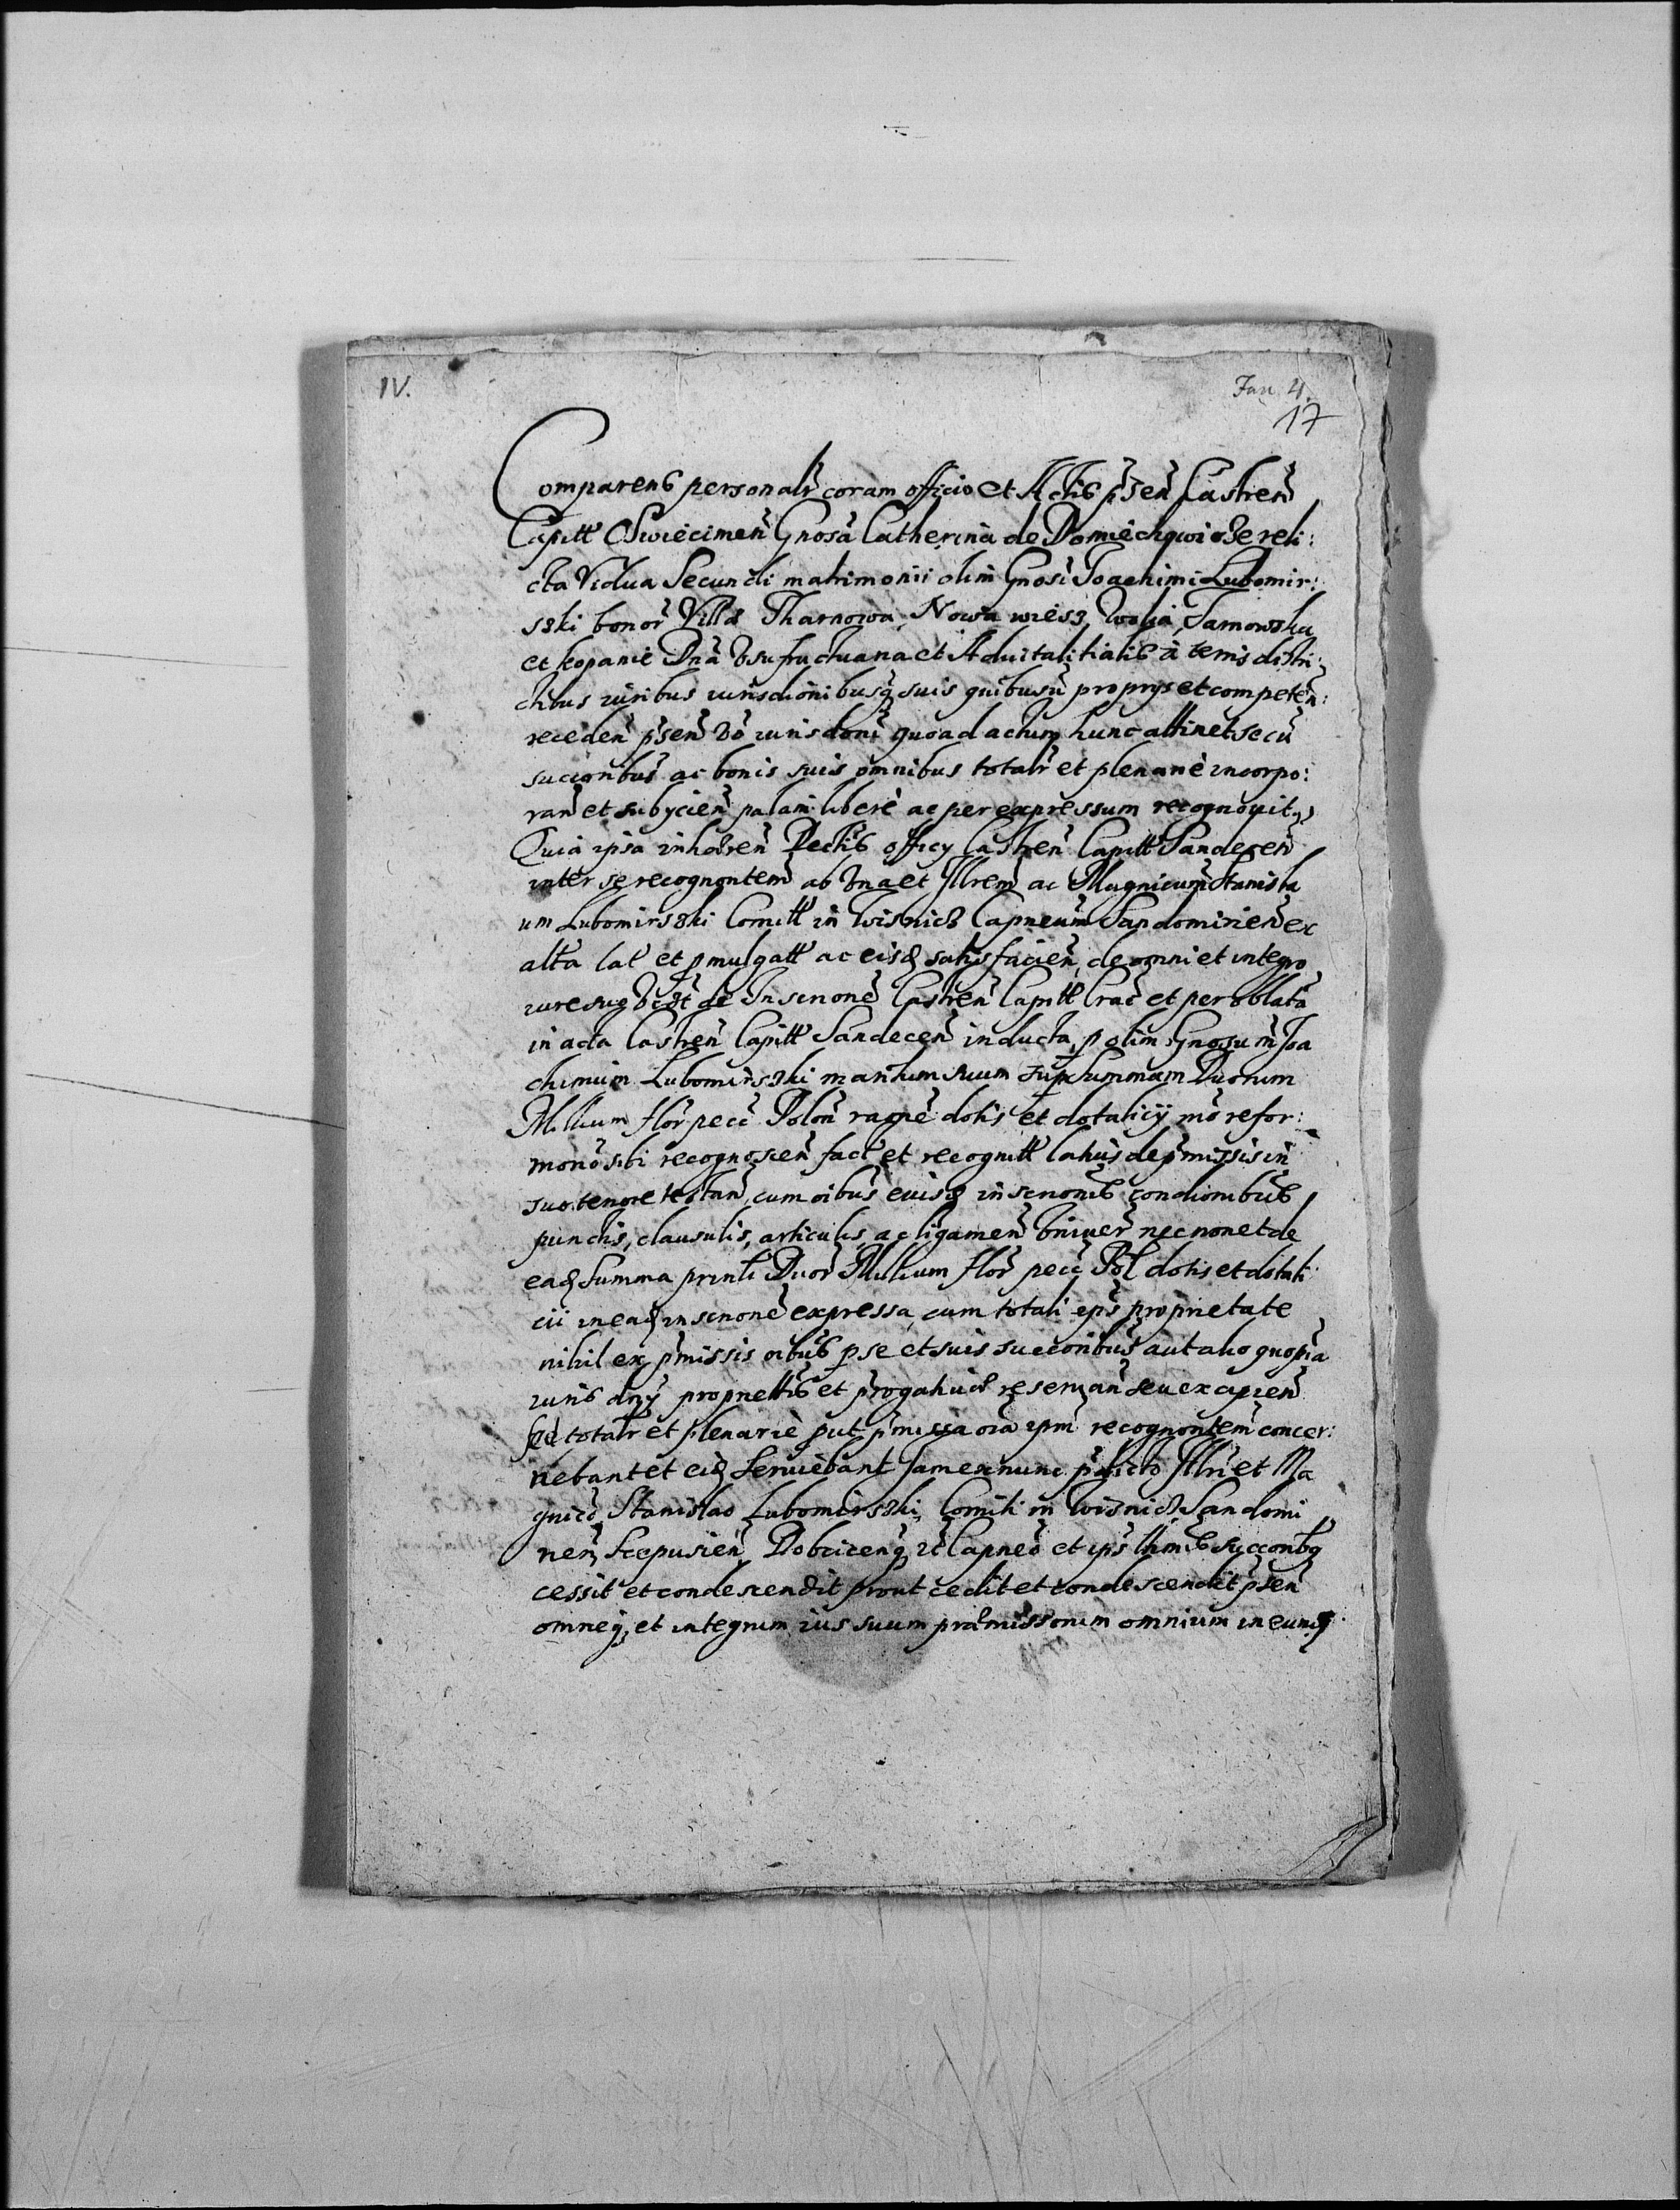 IV.
Jan. 4.
17
Comparens personalr coram officio et Actis pñsen Castren
Capitt Oswiecimen Gnosa Catherina de Domiechowicze reli:
cta Vidua Secundi matrimonii olim Gnosi Joachimi Lubomir:
szki bonor Villae Tharnowa, Nowa wiesz, Wolia, Tarnowska
et kopanie Dna Vsufructuaria et Aduitalitialis à terris distri:
ctibus iuribus iurisdionibusq suis quibusu propryis et competen:
receden pñsen vo iurisdoni quoad actum hunc attinet secu
succoribus ac bonis suis omnibus totalr et plenariè incorpo:
ran et subycien palam liberè ac per expressum recognouit
Quia ipsa inhaeren Dectis officy Castren Capitt Sandecen
inter se recognontem ab Vna et Illrem ac Magnicum Stanisla
um Lubomirszki Comitt in Wisnicz Capneum Sandomirien ex
alta lat et pmulgatt ac eisd satisfacien, de omni et integro
iure suo de Inscrione Castren Capitt Crac et per oblata
in acta Castren Capitt Sandecen inducta, p olim Gnosum Joa
chimum Lubomirszki maritum suum sup summam Duorum
Millium flor pecc Polon raone dotis et dotalicij mo refor:
mono sibi recognoscen fact et recognitt latius de pmissis in
suo tenore testan, cum oibus euisd inscrionis condionibus
punctis, clausulis, articulis, ac ligamen Vniuer necnon et de
ead Summa prinli Duor Millium flor pecc Pol dotis et dotali
cii in ead inscrione expressa, cum totali eps proprietate
nihil ex pmissis oibus p se et suis succoribus aut alio quopia
iuris dny propriettis et progatiuae reseruan seu excapien
sed totalr et plenariè put pmissa oia ipm recognontem concer:
nebant et eid seruiebant Jam ex nunc pdicto Illri et Ma
gnico Stanislao Lubomirszki, Comiti in Wisnicz Sandomi
rien, Scepusien Dobczicenq Capneo et ips succoribq
cessit et condescendit prout cedit et condescendit psen
omneq, et integrum ius suum praemissorum omnium in eund